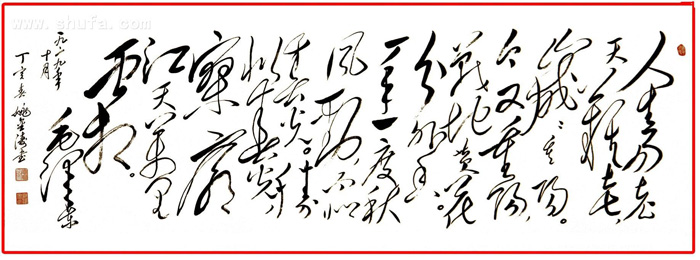 www.shufa.com
人生易老
天难老，
岁岁重阳。
今又重阳，
战地黄花
分外香。
一年一度秋
风劲，不似
春光。胜
似春光，
寥廓
江天万里
霜。
毛泽东
十月